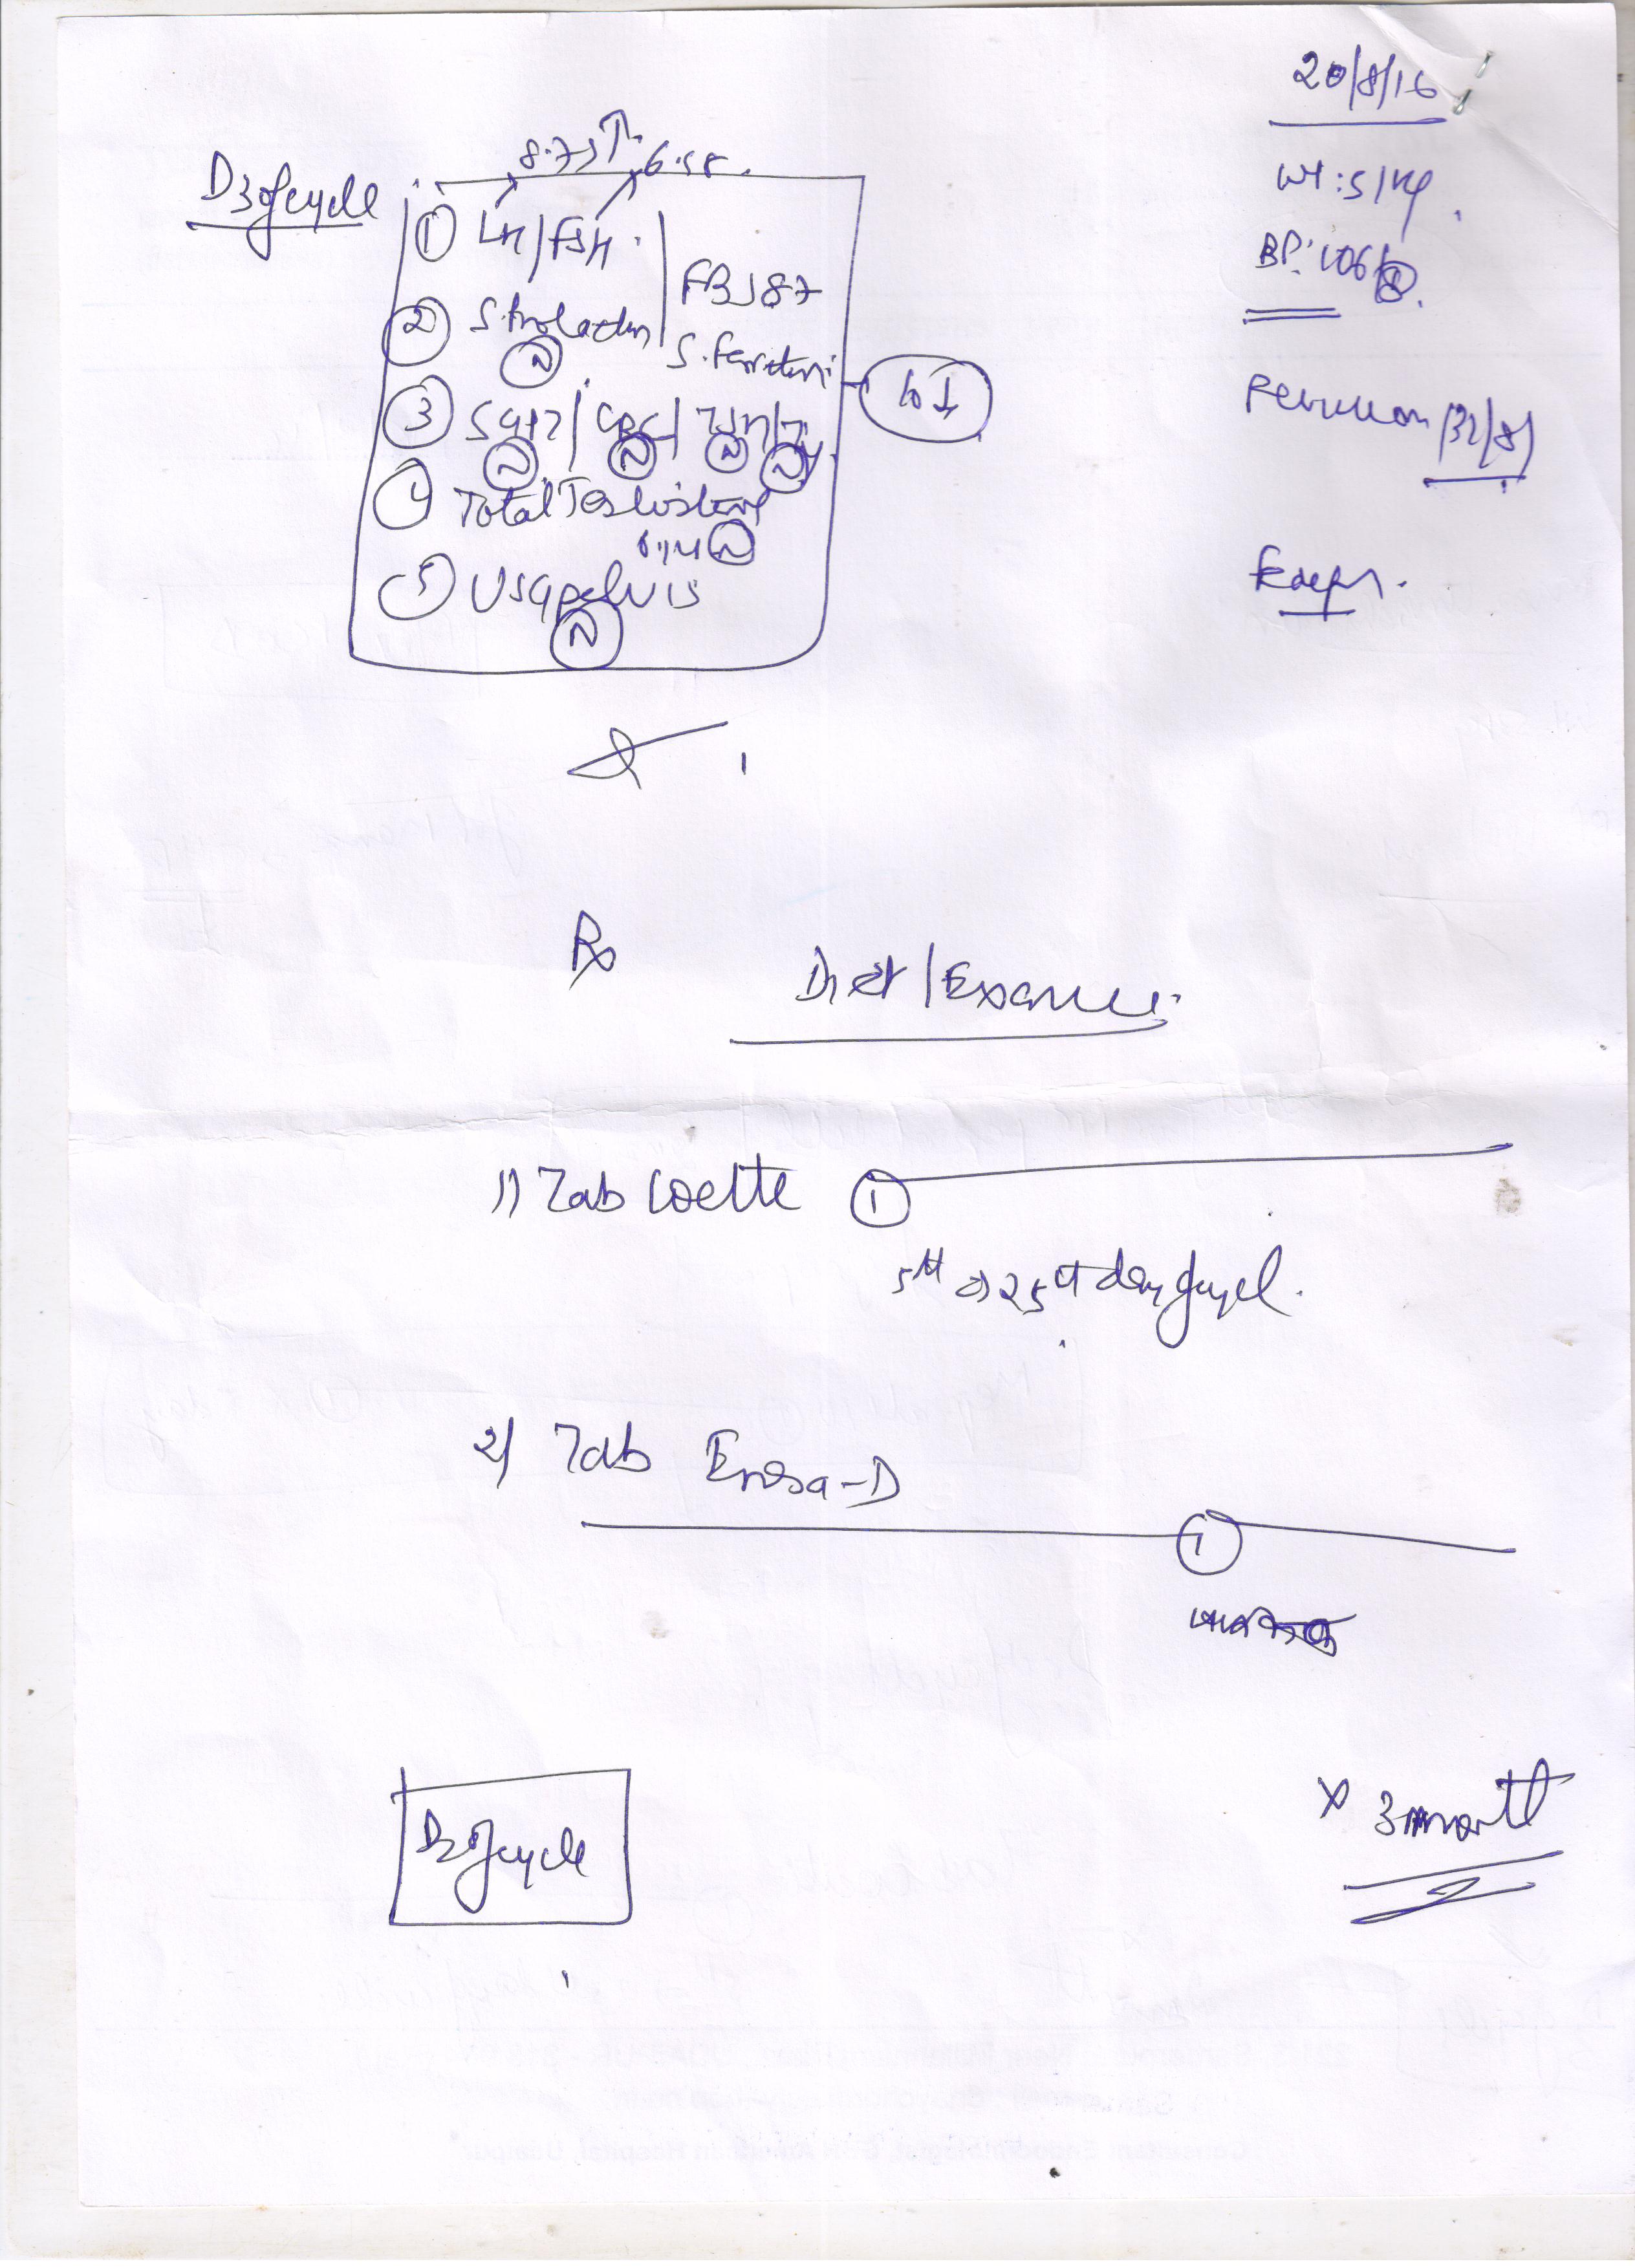 20/8/16
Wt: 51kg.
BP: 106/
D3 of cycle
8.73 ↑ 6.58.
① LH/FSH.
FBS 87
② S. Prolactin
N
S. Ferritin
③ SGPT/CBC/TSH/T4
N N N N
④ Total Testosterone
N
⑤ USG pelvis
N
Rx
Diet/Exercise
1) Tab Loette ①
5th → 25th day of cycle.
2) Tab Erosa-D
①
D2 of cycle
x 3 month